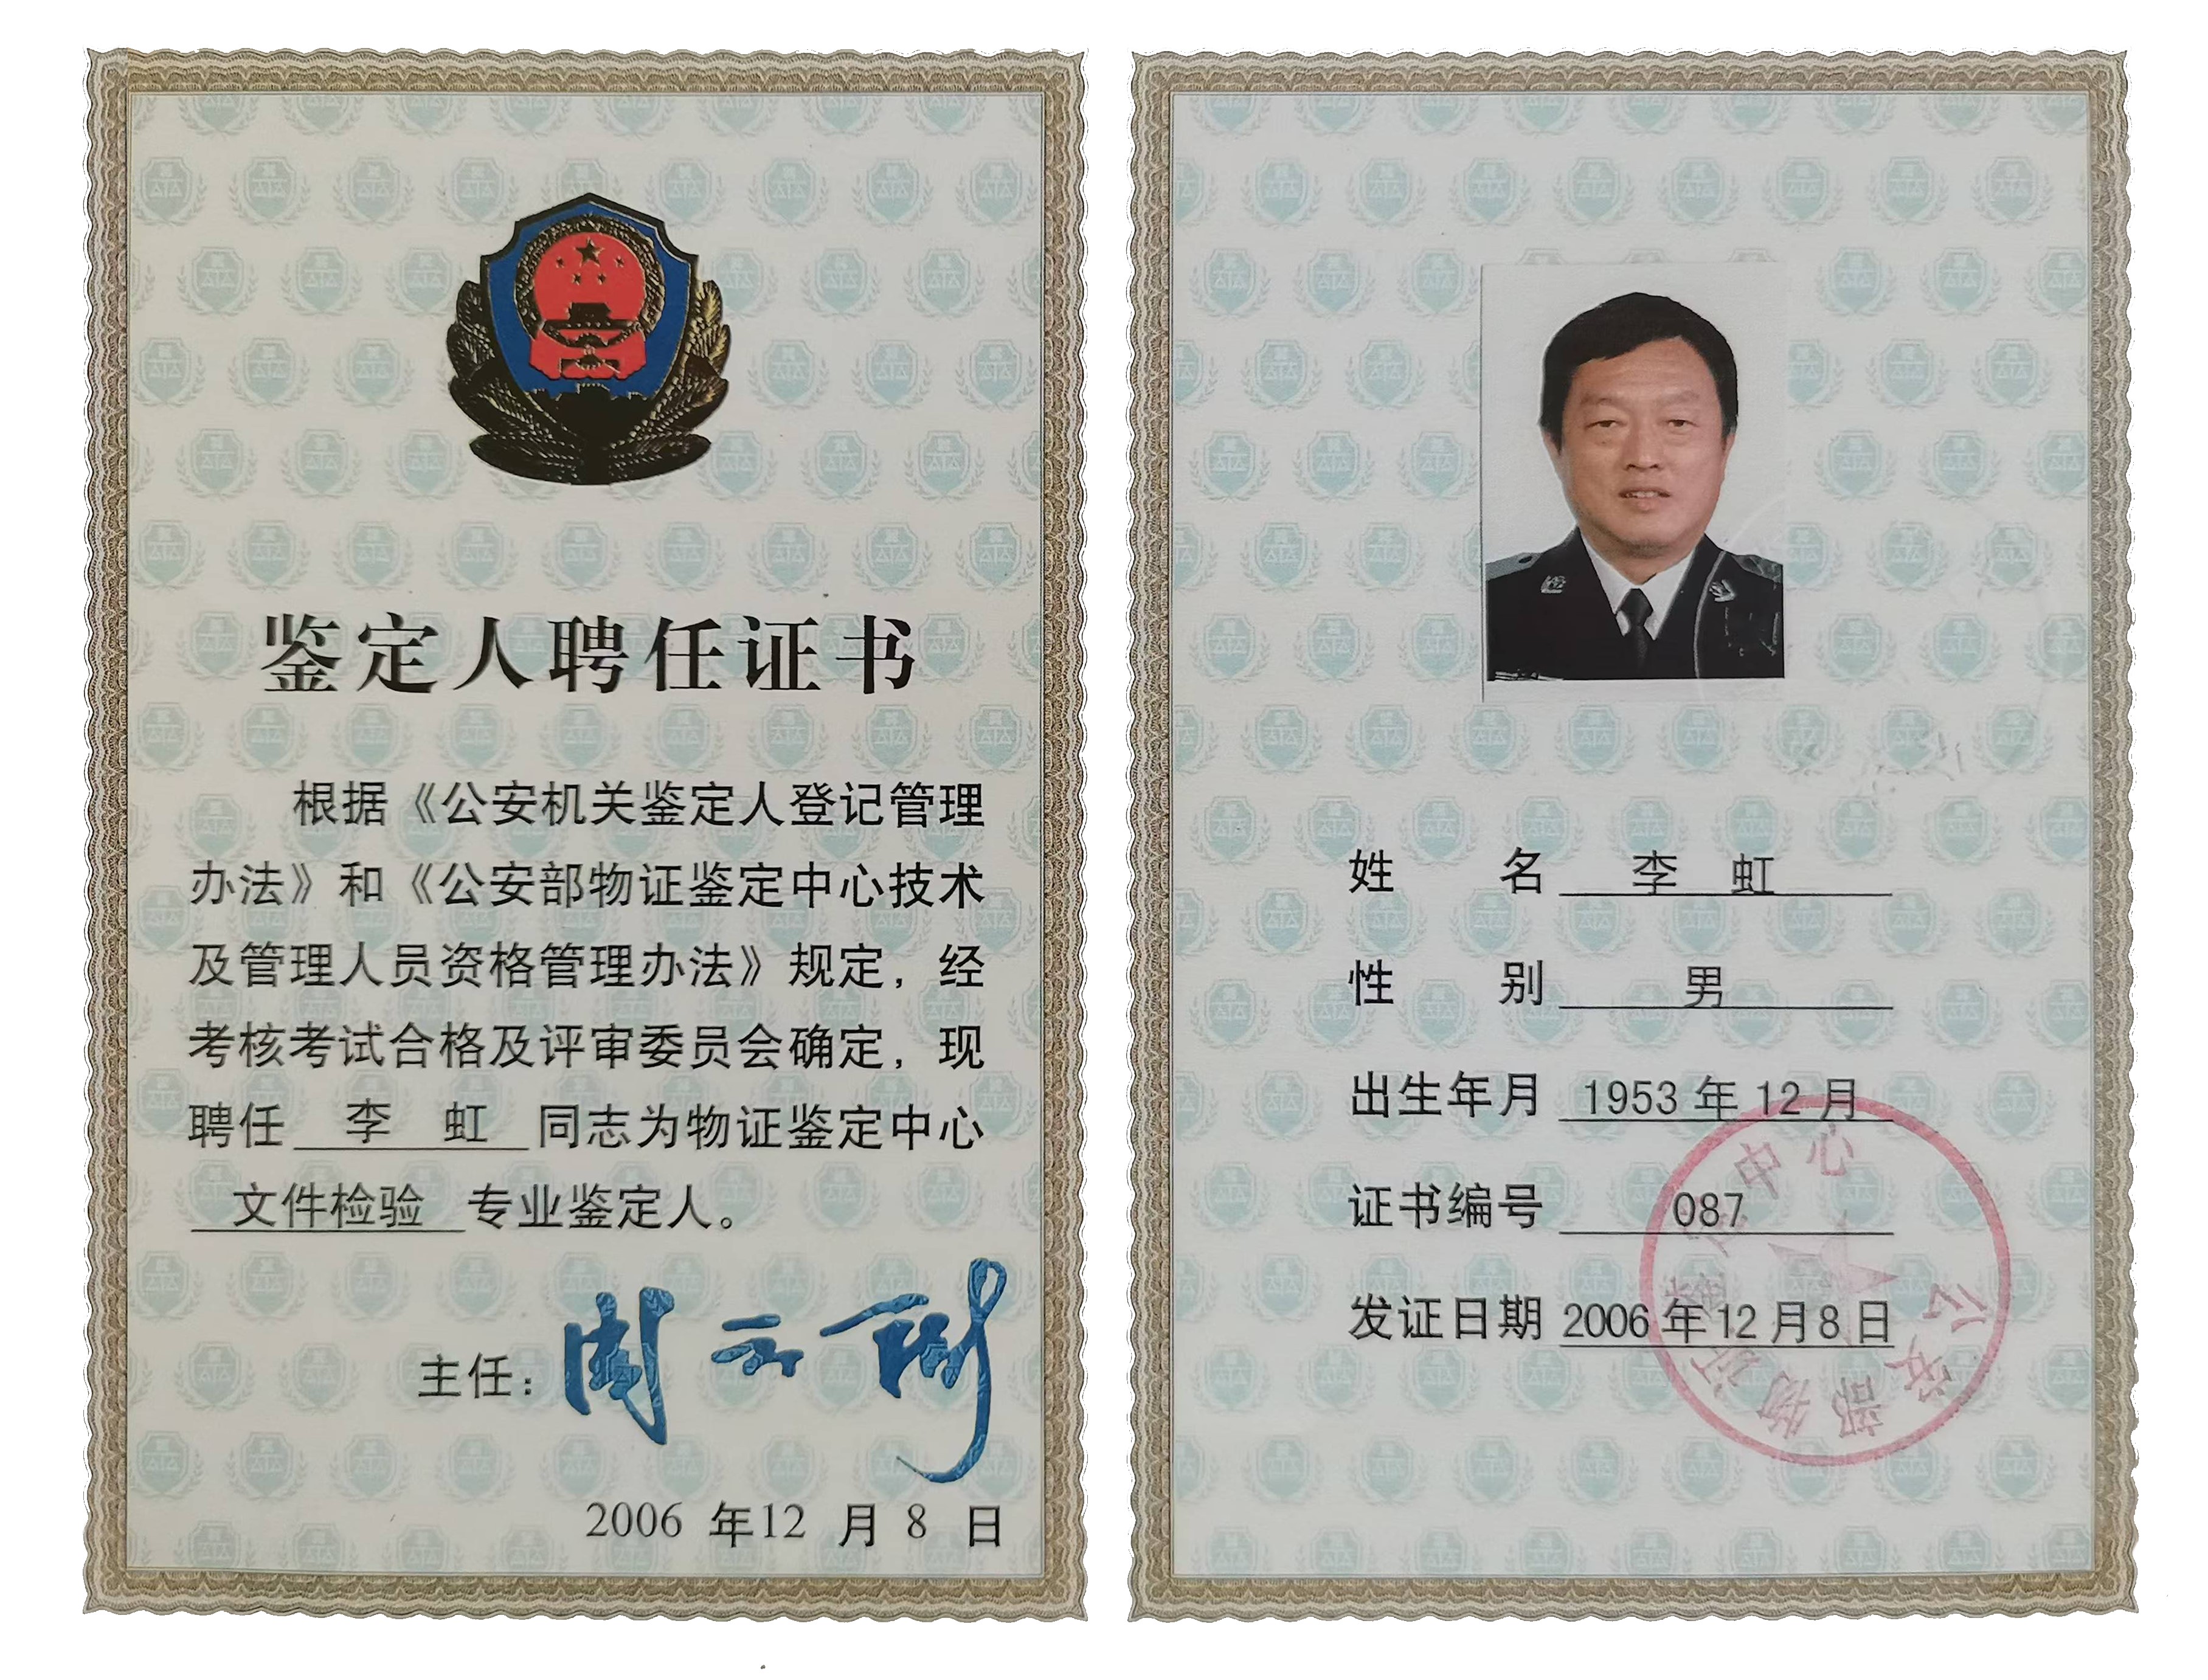 鉴定人聘任证书
根据《公安机关鉴定人登记管理
办法》和《公安部物证鉴定中心技术
及管理人员资格管理办法》规定，经
考核考试合格及评审委员会确定，现
聘任 李 虹 同志为物证鉴定中心
文件检验 专业鉴定人。
主任：
2006 年 12 月 8 日
姓 名 李 虹
性 别 男
出生年月 1953 年 12 月
证书编号 087
发证日期 2006 年 12 月 8 日
公安部物证鉴定中心